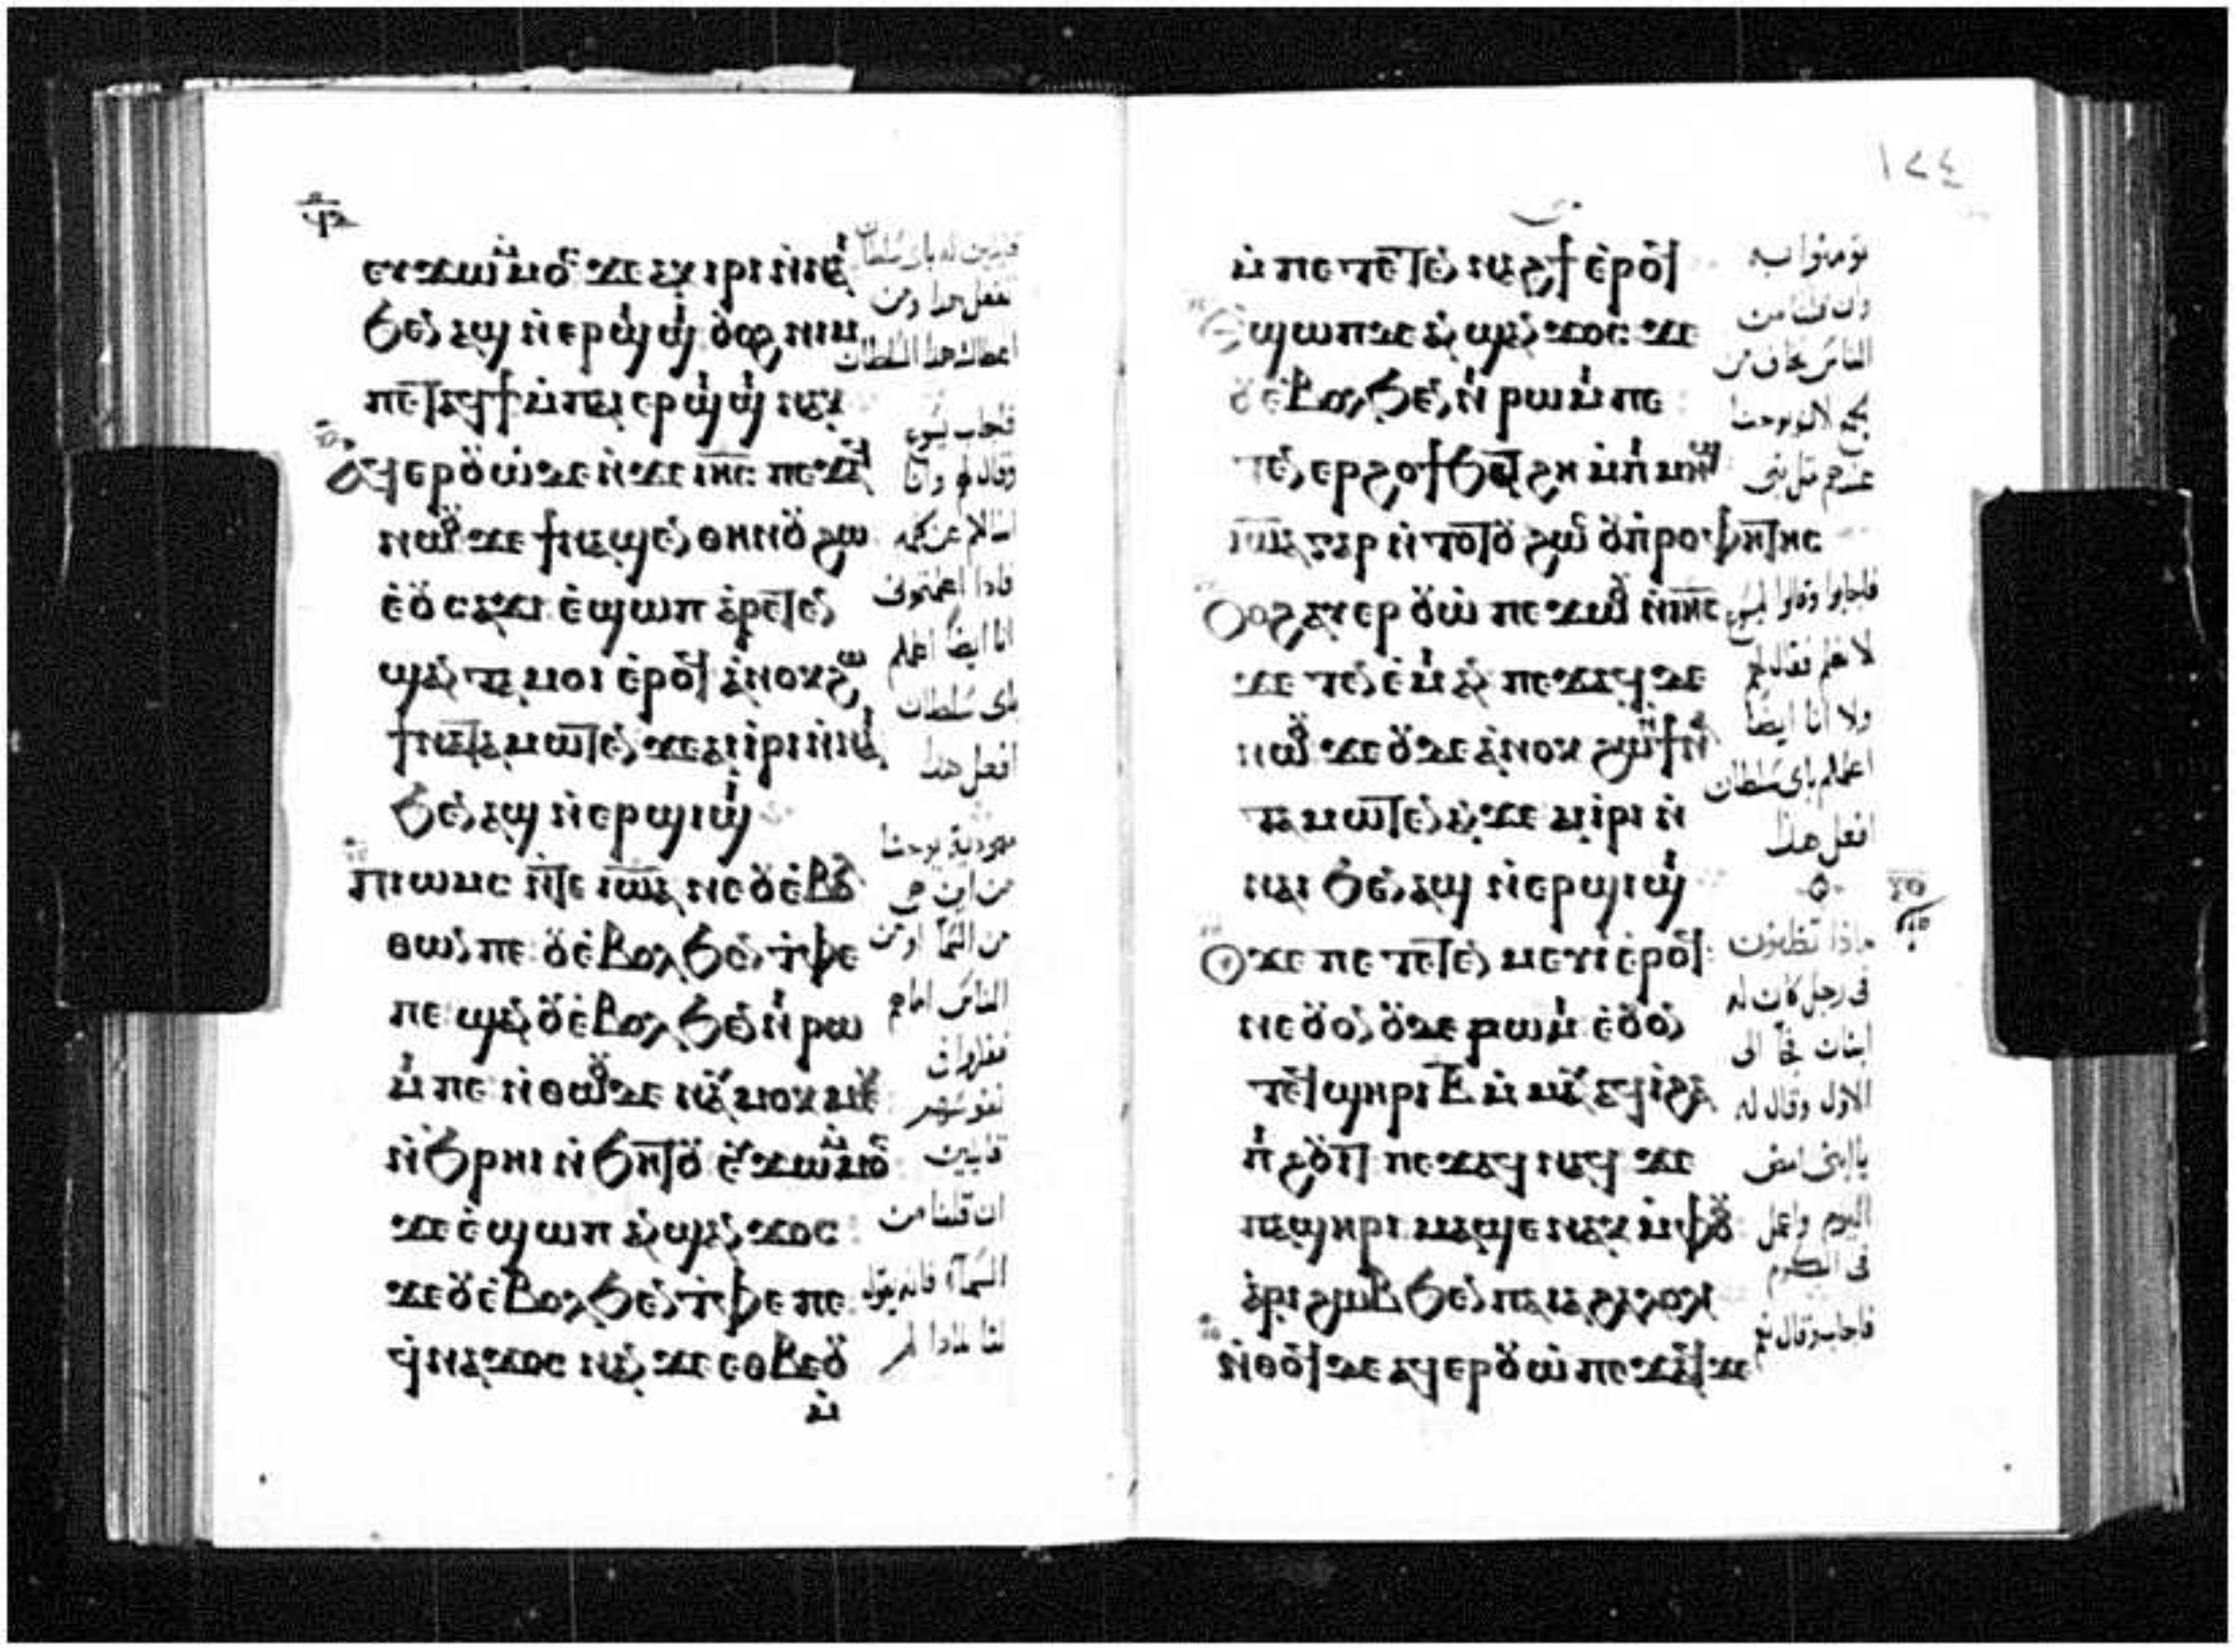 ⲉⲩϫⲱⲙⲙⲟⲥ ϫⲉ ⲁⲕⲓⲣⲓ ⲛⲛⲁⲓ
ϧⲉⲛ ⲁϣ ⲛⲉⲣϣⲓϣⲓ ⲟⲩⲟϩ ⲛⲓⲙ
ⲡⲉⲧⲁϥϯ ⲙⲡⲁⲓⲉⲣϣⲓϣⲓ ⲛⲁⲕ
ⲁϥⲉⲣⲟⲩⲱ ⲇⲉ ⲛϫⲉ ⲓⲏⲥ ⲡⲉϫⲁϥ
ⲛⲱⲟⲩ ϫⲉ ϯⲛⲁϣⲉⲛ ⲑⲏⲛⲟⲩ ϩⲱ
ⲉⲟⲩⲥⲁϫⲓ ⲉϣⲱⲡ ⲁⲣⲉⲧⲉⲛ
ϣⲁⲛⲧⲁⲙⲟⲓ ⲉⲣⲟϥ ⲁⲛⲟⲕ ϩⲱ
ϯⲛⲁⲧⲁⲙⲱⲧⲉⲛ ϫⲉ ⲁⲓⲓⲣⲓ ⲛⲛⲁⲓ
ϧⲉⲛ ⲁϣ ⲛⲉⲣϣⲓϣⲓ
ⲡⲓⲱⲙⲥ ⲛⲧⲉ ⲓⲱⲁ ⲛⲉ ⲟⲩⲉⲃⲟⲗ
ⲑⲱⲛ ⲡⲉ ⲟⲩⲉⲃⲟⲗ ϧⲉⲛ ⲧⲫⲉ
ⲡⲉ ϣⲁⲛ ⲟⲩⲉⲃⲟⲗ ϧⲉⲛ ⲛⲓⲣⲱ
ⲙⲓ ⲡⲉ ⲛⲑⲱⲟⲩ ⲇⲉ ⲛⲁⲩⲙⲟⲕⲙⲉⲕ
ⲛϧⲣⲏⲓ ⲛϧⲏⲧⲟⲩ ⲉⲩϫⲱⲙⲙⲟⲥ
ϫⲉ ⲉϣⲱⲡ ⲁⲛϣⲁⲛϫⲟⲥ
ϫⲉ ⲟⲩⲉⲃⲟⲗ ϧⲉⲛ ⲧⲫⲉ ⲡⲉ
ϥⲛⲁϫⲟⲥ ⲛⲁⲛ ϫⲉ ⲉⲑⲃⲉⲟⲩ
ⲙ
قايلين له باي سلطان
تفعل هدا ومن
اعطاك هدا السلطان
فاجاب يسوع
وقال لهم وانا
اسالكم عن كلمه
فادا اعلمتموني
انا ايضا اعلمكم
باي سلطان
افعل هدا
معمودية يوحنا
من اين هي
من السمآ او من
الناس اما هم
ففكروا في
نفوسهم
قايلين
ان قلنا من
السمآء فانه يقول
لنا لمادا لم
١٢٤
ⲙⲡⲉⲧⲉⲧⲉⲛⲛⲁϩϯ ⲉⲣⲟϥ
ⲉϣⲱⲡ ⲇⲉ ⲁⲛϣⲁⲛϫⲟⲥ ϫⲉ
ⲟⲩⲉⲃⲟⲗ ϧⲉⲛ ⲛⲓⲣⲱⲙⲓ ⲡⲉ
ⲧⲉⲛⲉⲣϩⲟϯ ϧⲁⲧϩⲏ ⲙⲡⲓⲙⲏϣ
ⲓⲱⲁ ⲅⲁⲣ ⲛⲧⲟⲧⲟⲩ ϩⲱⲥ ⲟⲩⲡⲣⲟⲫⲏⲧⲏⲥ
ⲟⲩⲟϩ ⲁⲩⲉⲣⲟⲩⲱ ⲡⲉϫⲱⲟⲩ ⲛⲓⲏⲥ
ϫⲉ ⲧⲉⲛⲉⲙⲓ ⲁⲛ ⲡⲉϫⲁϥ ⲇⲉ
ⲛⲱⲟⲩ ϫⲉ ⲟⲩⲇⲉ ⲁⲛⲟⲕ ϩⲱ ϯⲛⲁ
ⲧⲁⲙⲱⲧⲉⲛ ⲁⲛ ϫⲉ ⲁⲓⲓⲣⲓ ⲛ
ⲛⲁⲓ ϧⲉⲛ ⲁϣ ⲛⲉⲣϣⲓϣⲓ
ⲟⲩ ϫⲉ ⲡⲉⲧⲉⲧⲉⲛⲙⲉⲩⲓ ⲉⲣⲟϥ
ⲛⲉ ⲟⲩⲟⲛ ⲟⲩ ⲇⲉ ⲣⲱⲙⲓ ⲉⲟⲩⲟⲛ
ⲧⲉϥ ϣⲏⲣⲓ ⲃ ⲙⲙⲁⲩ ⲁϥⲓ ϩⲁ
ⲡϩⲟⲩⲓⲧ ⲡⲉϫⲁϥ ⲛⲁϥ ϫⲉ
ⲡⲁϣⲏⲣⲓ ⲙⲁϣⲉⲛⲁⲕ ⲙⲫⲟⲟⲩ
ⲁⲣⲓϩⲱⲃ ϧⲉⲛ ⲡⲁⲓⲁϩⲁⲗⲟⲗⲓ
ⲛⲑⲟϥ ⲇⲉ ⲁϥⲉⲣⲟⲩⲱ ⲡⲉϫⲁϥ ϫⲉ
تومنوا به
وان قلنا من
الناس نخاف من
الجمع لان يوحنا
عندهم مثل نبي
فاجابوا وقالوا ليسوع
لا نعلم فقال لهم
ولا انا ايضا
اعلمكم باي سلطان
افعل هذا
ماذا تظنون
في رجل كان له
ابنان فجآ الى
الاول وقال له
يا ابني امض
اليوم واعمل
في الكرم
فاجاب وقال نعم